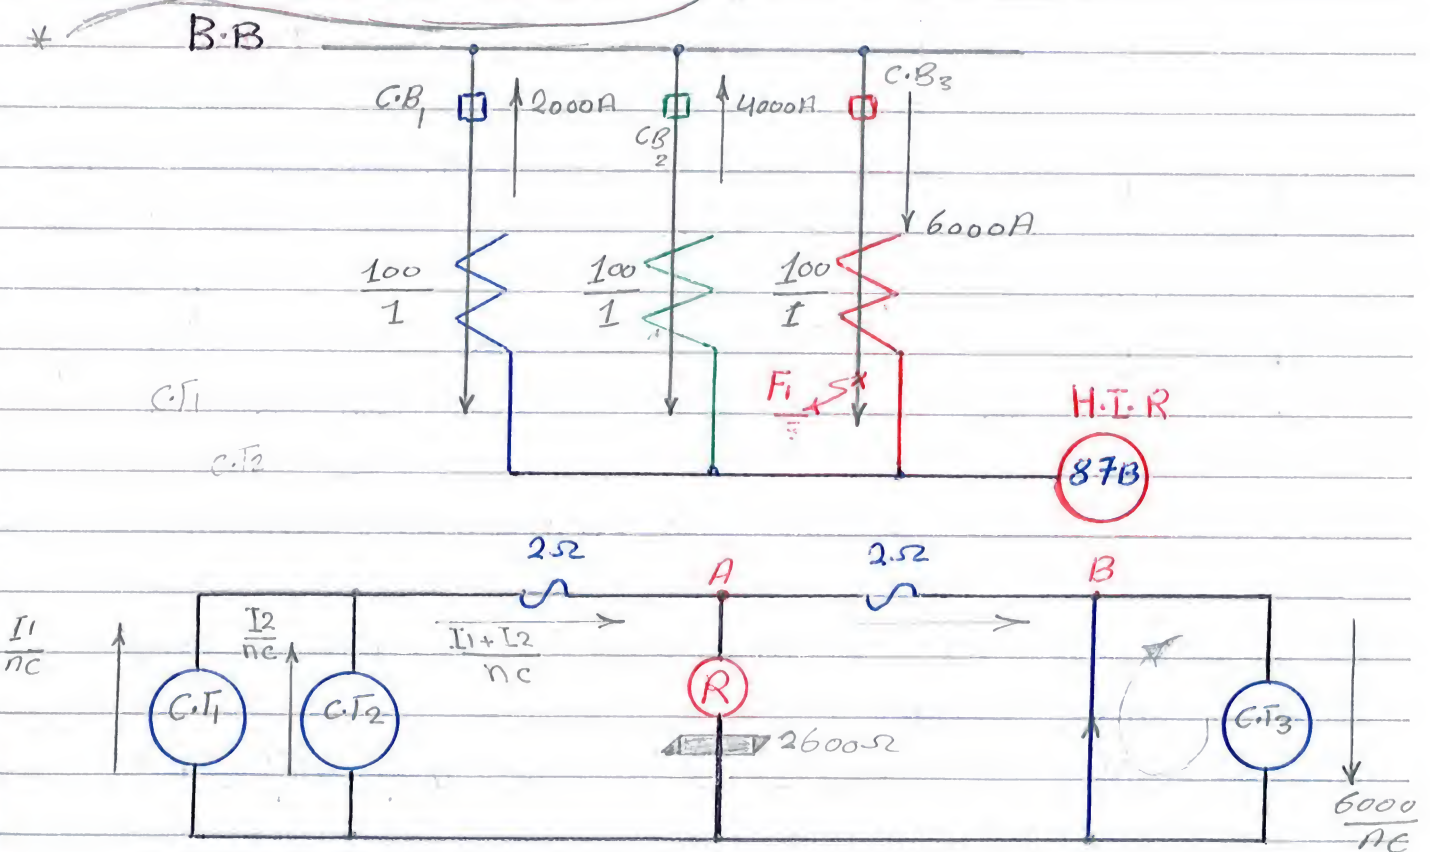 * B.B
C.B3
C.B1 2000A 4000A
CB2
6000A
100/1 100/1 100/1
F1
C.T1
H.I.R
C.T2
87B
2Ω 2Ω
A B
I1/nc I2/nc
I1+I2/nc
C.T1 C.T2 R C.T3
2600Ω
6000/nc